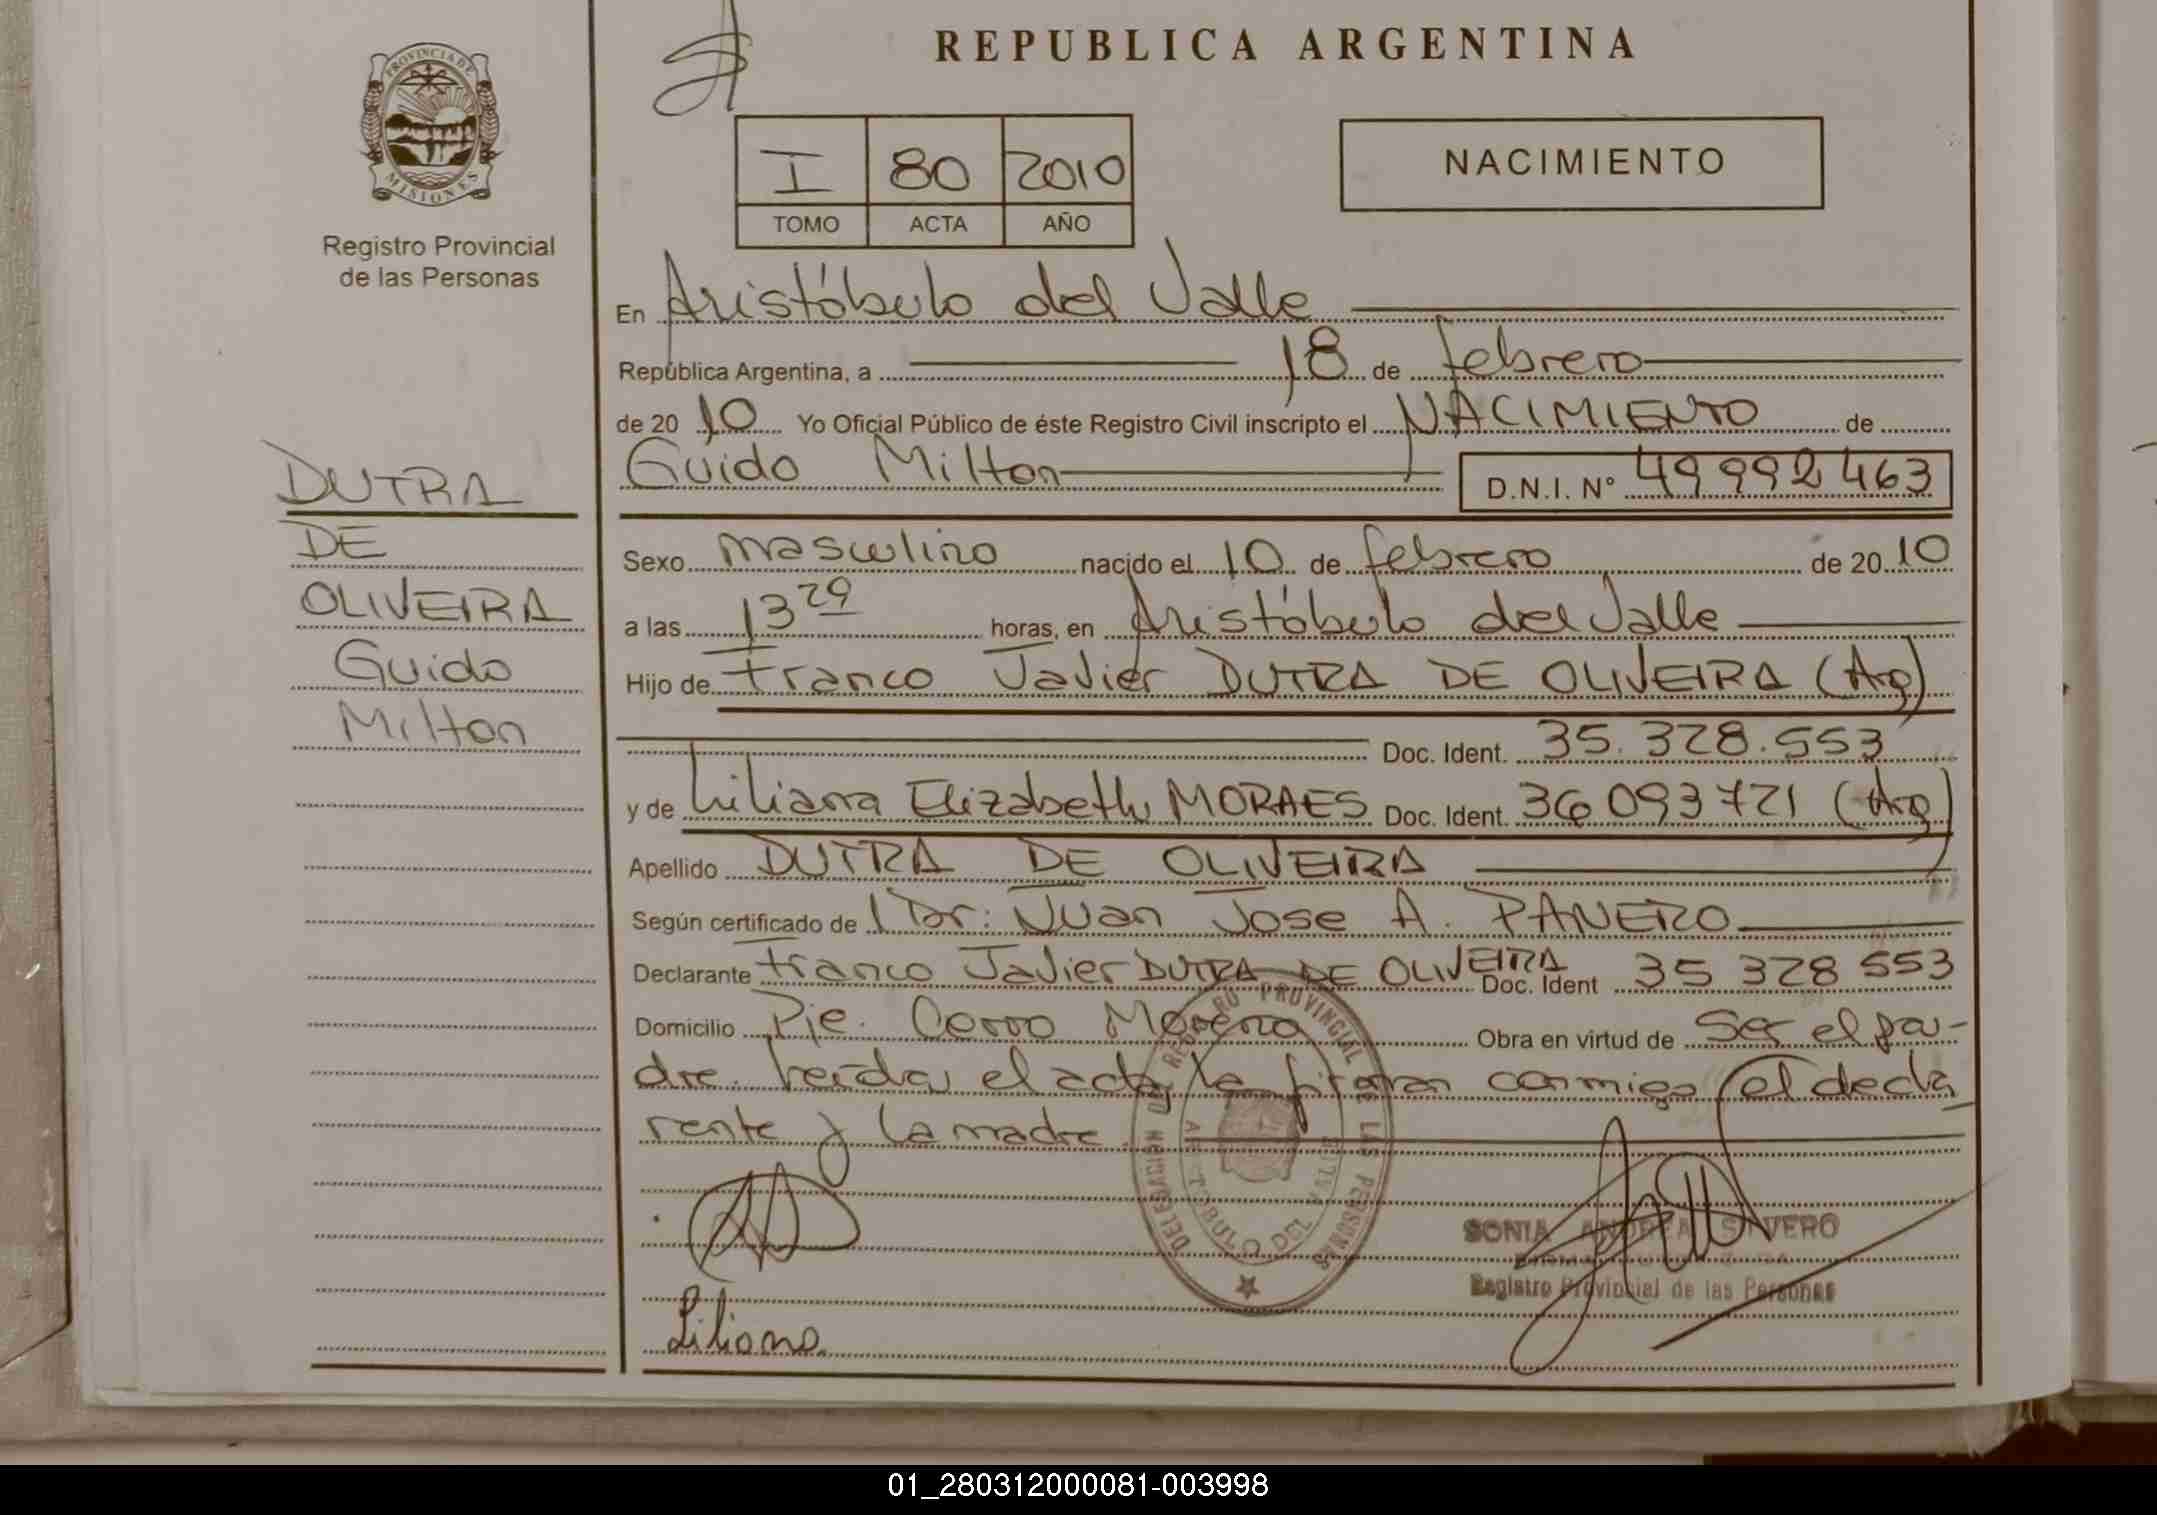 REPUBLICA ARGENTINA
PROVINCIA DE
MISIONES
Registro Provincial
de las Personas
I 80 2010
TOMO ACTA AÑO
NACIMIENTO
En Aristóbulo del Valle
República Argentina, a 18 de febrero
de 20 10 Yo Oficial Público de éste Registro Civil inscripto el NACIMIENTO de
Guido Milton D.N.I. N° 49 992 463
DUTRA
DE
OLIVEIRA
Guido
Milton
Sexo masculino nacido el 10 de febrero de 20 10
a las 13 29 horas, en Aristóbulo del Valle
Hijo de Franco Javier DUTRA DE OLIVEIRA (Arg)
Doc. Ident. 35.328.553
y de Liliana Elizabeth MORAES Doc. Ident. 36 093 721 (Arg)
Apellido DUTRA DE OLIVEIRA
Según certificado de Dr: Juan Jose A. PANERO
Declarante Franco Javier DUTRA DE OLIVEIRA Doc. Ident 35 328 553
Domicilio Pje. Cerro Moreno Obra en virtud de Ser el pa-
dre. leída el acta la firman conmigo el decla
rante y la madre
DELEGACION DEL REGISTRO PROVINCIAL DE LAS PERSONAS
ARISTOBULO DEL VALLE
SONIA ANDREA SILVERO
Registro Provincial de las Personas
Liliana
01_280312000081-003998